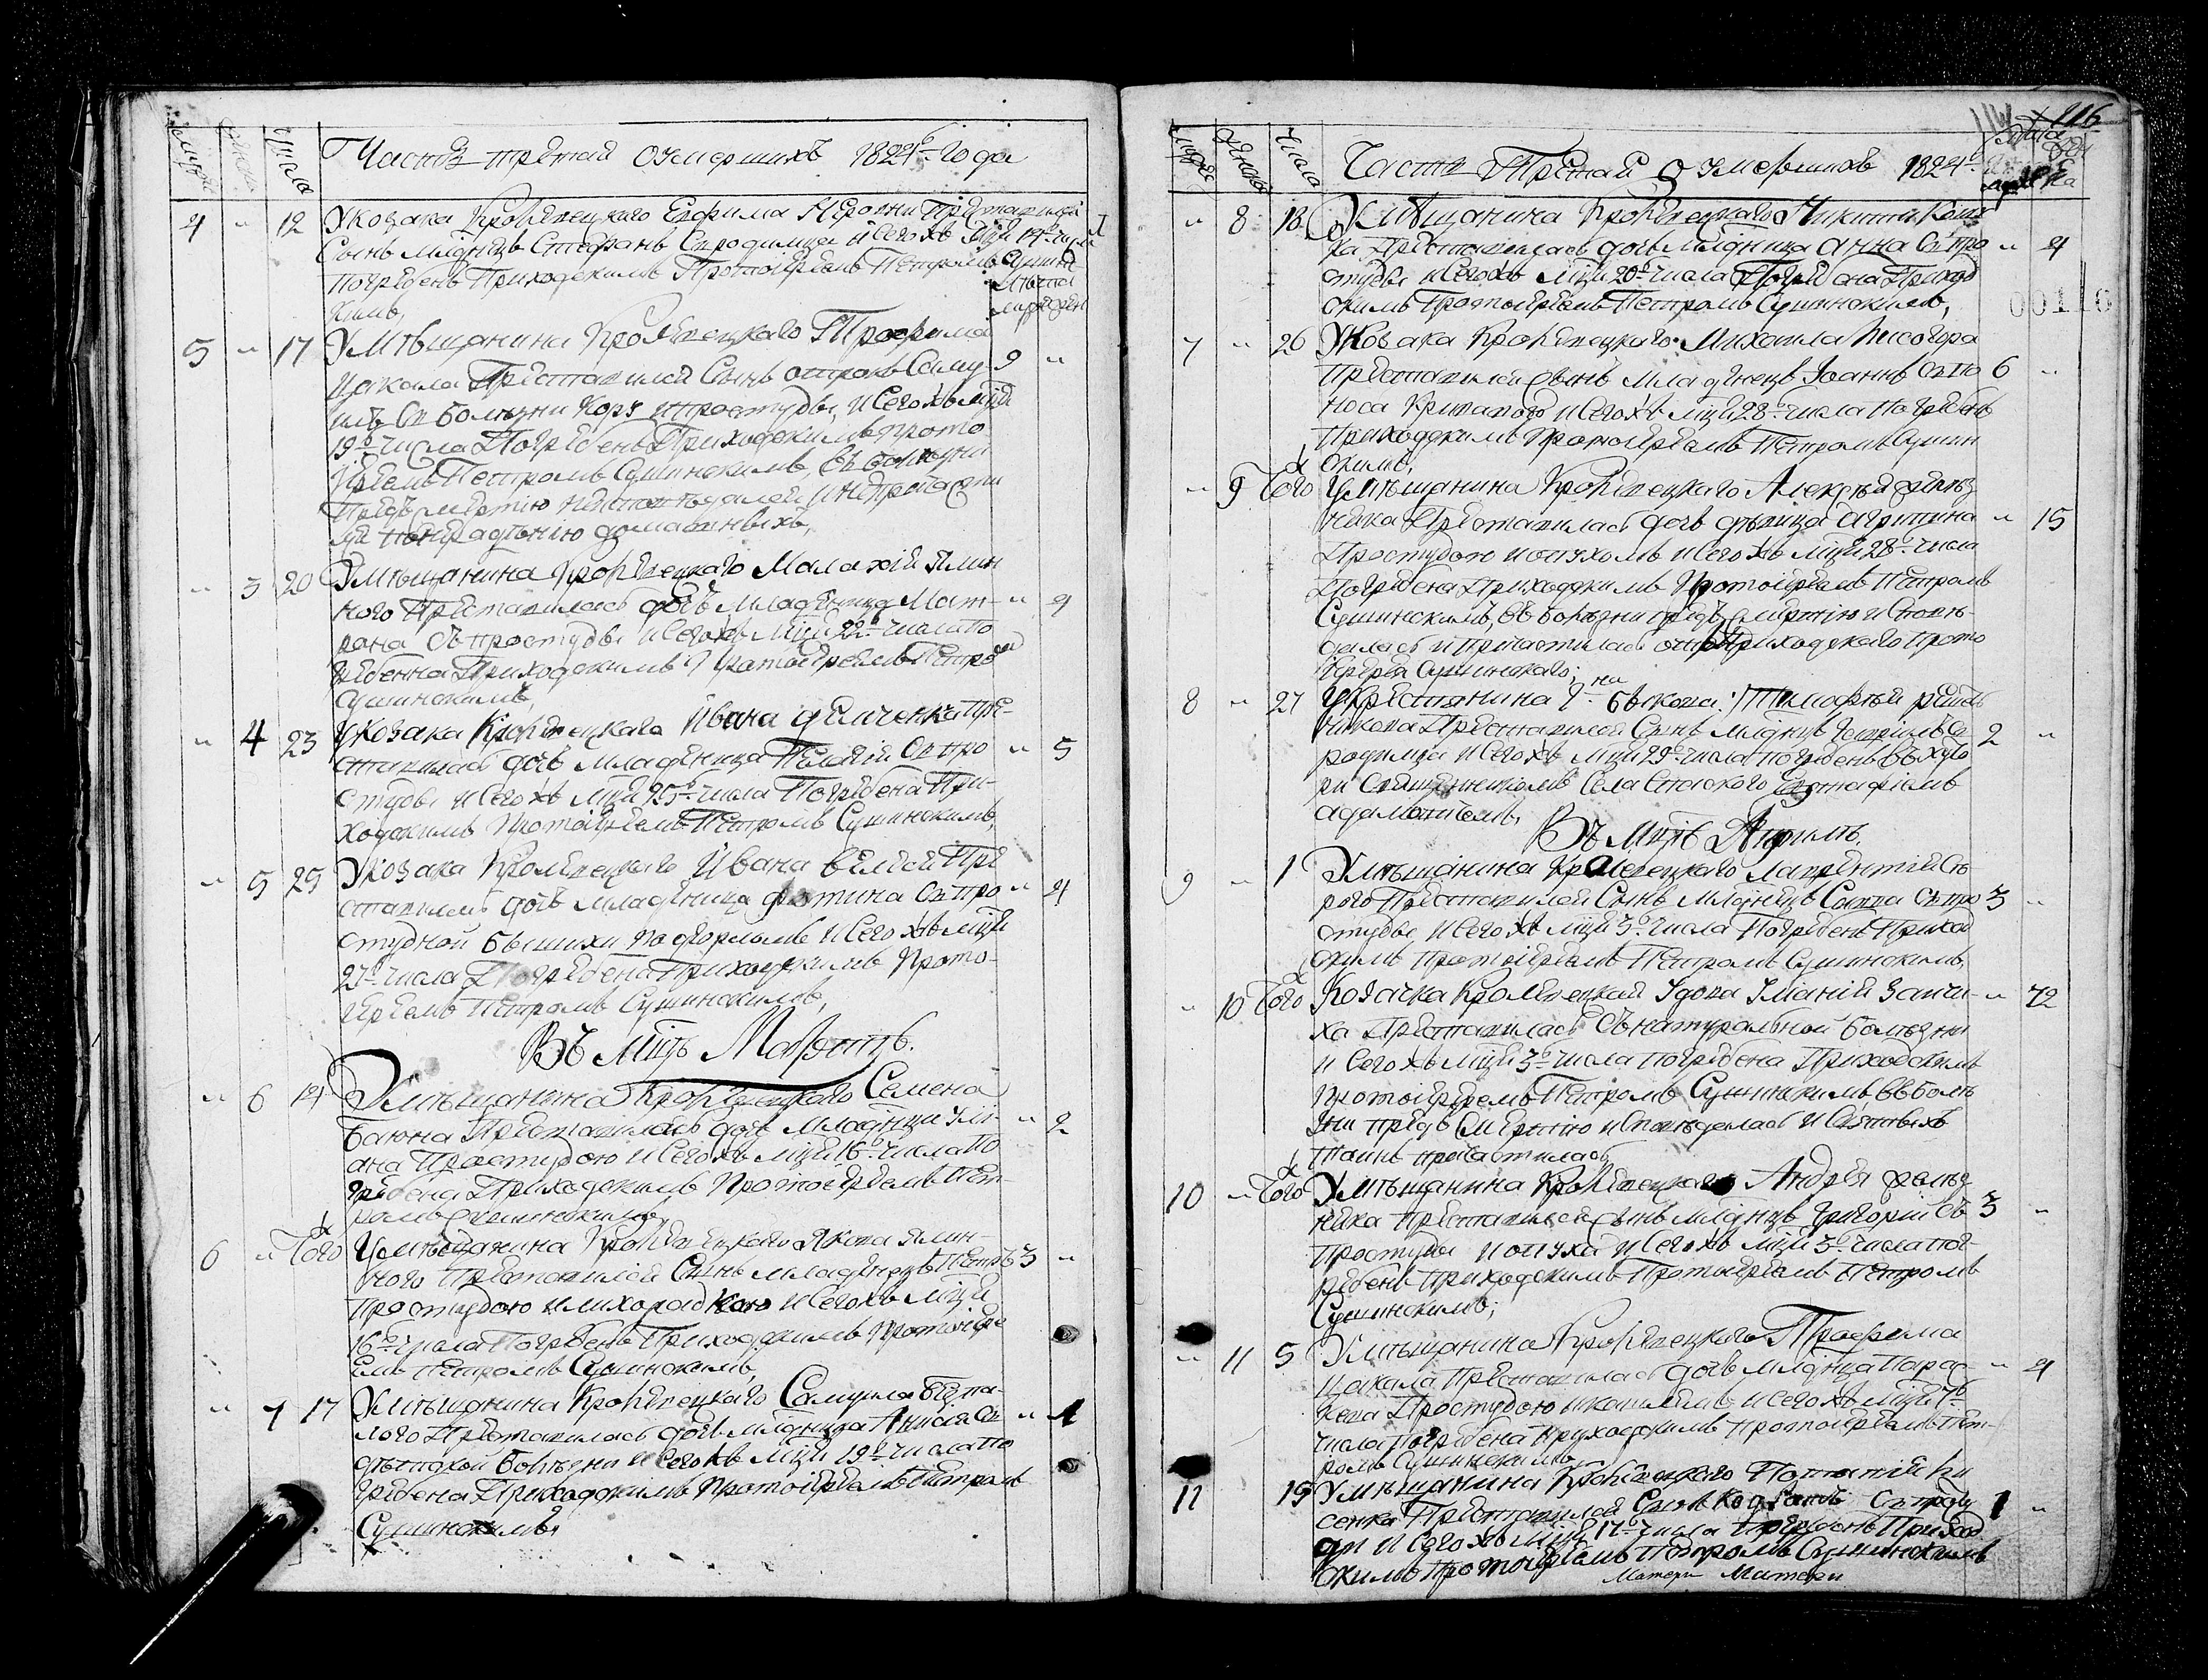 Часть третая О умершихъ 1824 года
4 " 12 Укозака Кролевецкаго Ефима
Сынъ младнцъ Стефанъ Сродимца и Сегожъ мца 14 числа
погребенъ Приходскимъ Протоиереемъ Петромъ Сушинс
кимъ,
5 " 17 Умѣщанина Кролевецкаго Трофима
Цакала Преставился Сынъ отрокъ Саму 9 "
илъ Съ болѣзни Кору ипростуды, и Сегожъ мца
19 числа Погребенъ Приходскимъ прото
иереемъ Петромъ Сушинскимъ, въ болѣзни
предъ смертію неисповѣдался и непричасти
ся понерадѣнію домашныхъ,
" 3 20 Умѣщанина Кролевецкаго Малахія Ялин
ного Преставилась дочь младеница Мат- " 4
рона Съпростуды и Сегожъ мца 22 числа по
гребенна Приходскимъ Протоиереемъ Петромъ
Сушинскимъ,
" 4 23 Укозака Кролевецкаго Ивана Демченка Пре-
ставилась дочь младеница Пелагія Съпро " 5
студы и Сегожъ мца 25 числа Погребена При-
ходскимъ Протоиереемъ Петромъ Сушинскимъ,
" 5 25 Укозака Кролевецкаго Ивана Пре
ставилась дочь младеница Фотина Съпро " 4
студной бышихи подгорломъ и Сегожъ мца
27 числа Погребена Приходскимъ Прото-
иереемъ Петромъ Сушинскимъ,
Въ мцѣ Мартѣ.
" 6 14 Умѣщанина Кролевецкаго Семена
Баюна Преставилась дочь младнца Улі- " 2
ана Простудою и Сегожъ мца 16 числа по
гребена Приходскимъ Протоиереемъ Пет-
ромъ Сушинскимъ,
6 " Того Умѣщанина Кролевецкаго Якова Ялин-
ного Преставился Сынъ младенецъ Петръ 3 "
Простудою илихорадкою и Сегожъ мца
16 числа Погребенъ Приходскимъ Протоиере
емъ Петромъ Сушинскимъ,
" 7 17 Умѣщанина Кролевецкаго Самуила Безпа-
лого Преставилась дочь младнца Анисія Съ " 1
дѣтской болѣзни и Сегожъ мца 19 числа по
гребена Приходскимъ Протоиереемъ Петромъ
Сушинскимъ,
116
Часть Третая О умершихъ 1824
" 8 18 Умѣщанина Кролевецкаго Никиты
ка Преставилась дочь младница Анна Съпро " 4
студы и Сегожъ мца 20 числа Погребена Приход
скимъ Протоиереемъ Петромъ Сушинскимъ,
00116
7 " 26 Укозака Кролевецкаго Михаила Лисогора
Преставился Сынъ младенецъ Іоаннъ Съпо 6 "
носа Криваваго и Сегожъ мца 28 числа Погребенъ
Приходскимъ Протоиереемъ Петромъ Сушин
скимъ,
" 9 Того Умѣщанина Кролевецкаго Алексѣя
ника Преставилась дочь дѣвица Агрипина " 15
Простудою иопухомъ и Сегожъ мца 28 числа
Погребена Приходскимъ Протоиереемъ Петромъ
Сушинскимъ, въ болѣзни предъ смертію и Исповѣ-
далась и Причастилась отъ Приходскаго прото
иерея Сушинскаго;
8 " 27 Укрестянина Тимофѣя
Преставился Сынъ младнцъ Съ 2 "
родимца и Сегожъ мца 29 числа погребенъ въхуто
ри Священникомъ Села Спаского Евстафіемъ
Въ мцѣ Априлѣ.
9 " 1 Умѣщанина Кролевецкаго Лаврентія Сѣ-
рого Преставился Сынъ младнцъ Савва Съпро 3 "
студы и Сегожъ мца 3 числа Погребенъ Приход
скимъ Протоиереемъ Петромъ Сушинскимъ,
" 10 Того Козачка Кролевецкая Удова Уліанія Заичи- " 72
ха Преставилась Снатуральной болѣзни
и Сегожъ мца 3 числа погребена Приходскимъ
Протоиереемъ Петромъ Сушинскимъ, въ болѣ
зни предъ Смертію и Исповѣдалась и Святыхъ
Таинъ причастилась,
10 " Того Умѣщанина Кролевецкаго Андрея
ника преставился Сынъ младнцъ Григорій Съ 3 "
простуды иопуха и Сегожъ мца 3 числа пог-
ребенъ Приходскимъ Протоиереемъ Петромъ
Сушинскимъ;
" 11 5 Умѣщанина Кролевецкаго Трофима
Цакала Преставилась дочь младнца Парас- " 4
кева Простудою икашлемъ и Сегожъ мца 7
числа погребена Приходскимъ Протоиереемъ Пет-
ромъ Сушинскимъ
11 15 Умѣщанина Кролевецкаго Потапія Ли
сенка Преставился Сынъ Кодратъ Съпросту 1 "
ди и Сегожъ мца 17 числа погребенъ Приход
скимъ Протоиереемъ Петромъ Сушинскимъ
Матери Матери